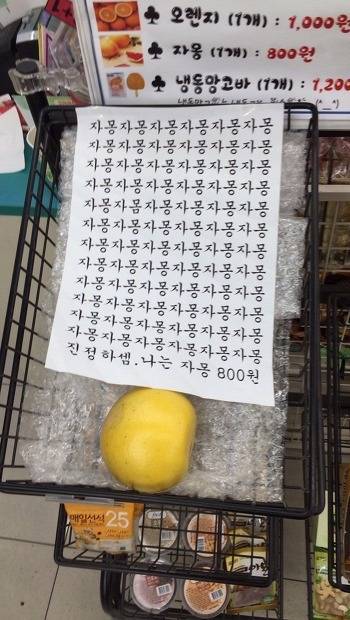 ♣ 오렌지 (1개) : 1,000원
♣ 자몽 (1개) : 800원
♣ 냉동망고바 (1개) : 1,200
자몽자몽자몽자몽자몽자몽
자몽자몽자몽자몽자몽자몽
자몽자몽자몽자몽자몽자몽
자몽자몽자몽자몽자몽자몽
자몽자몽자몽자몽자몽자몽
자몽자몽자몽자몽자몽자몽
자몽자몽자몽자몽자몽자몽
자몽자몽자몽자몽자몽자몽
자몽자몽자몽자몽자몽자몽
자몽자몽자몽자몽자몽자몽
자몽자몽자몽자몽자몽자몽
자몽자몽자몽자몽자몽자몽
진정하셈.나는 자몽 800원
매일선선 25